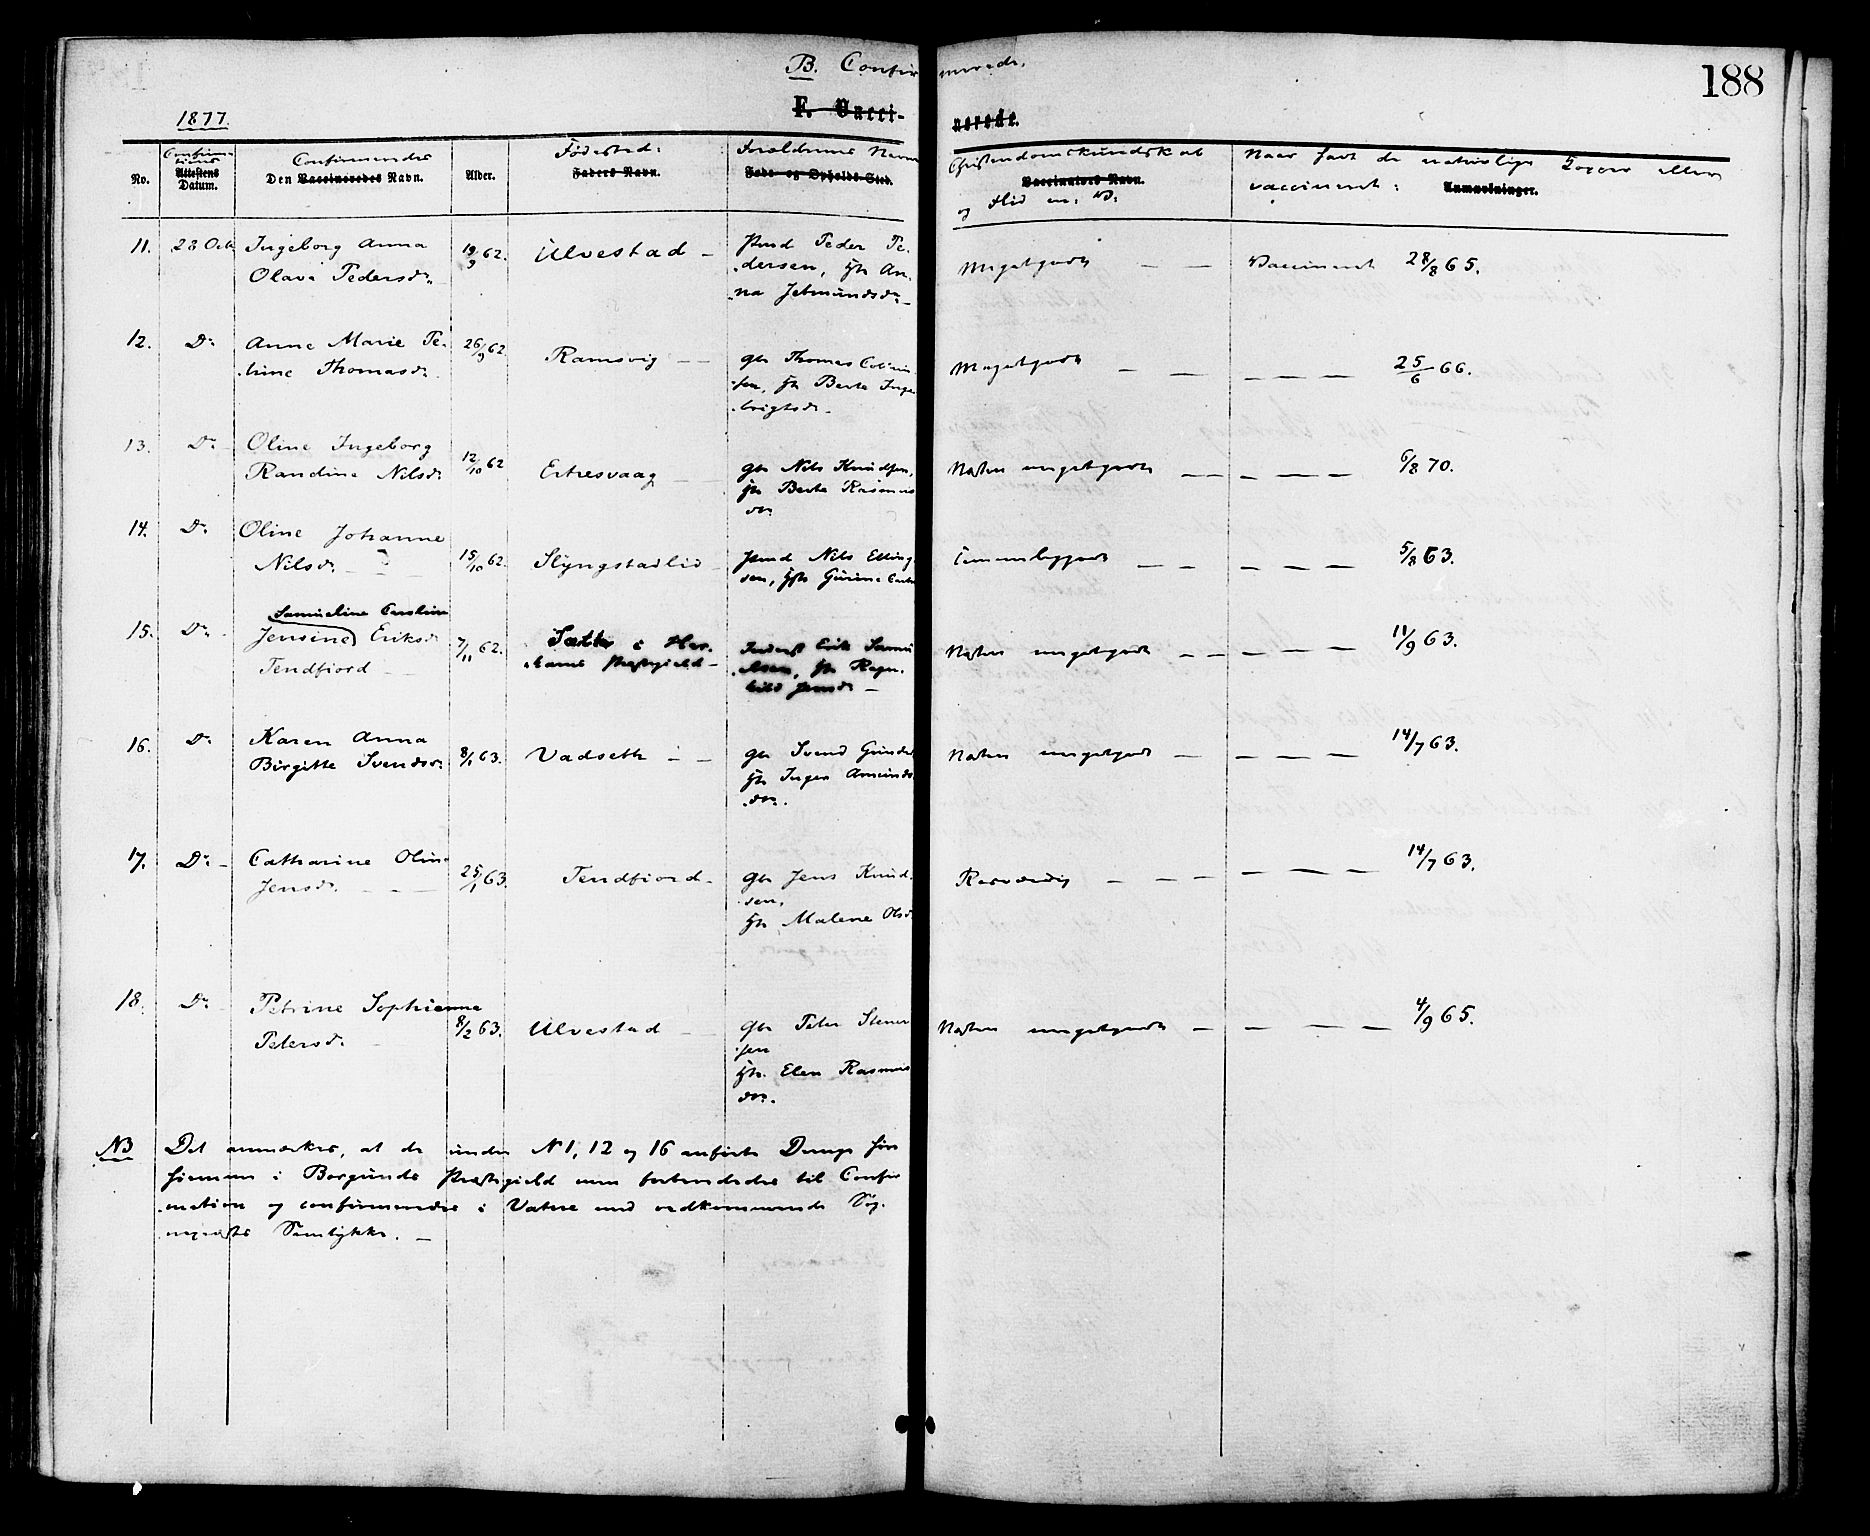 B. Confirmerede.
188
1877.
F. Vacci-
nerede.
No.
Confirma-
tions
Attestens
Datum.
Confirmendes
Den Vaccineredes Navn.
Alder.
Fødested:
Faders Navn.
Forældrenes Navn
Føde- og Opholds-Sted.
Christendomskundskab
Vaccinators Navn.
og Flid m. V.
Naar havt de naturlige Kopper eller
vaccineret:
Anmærkninger.
11. 28 Oct. Ingeborg Anna
Olava Pedersdr.
19/9 62.
Ulvestad –
Pmd Peder Pe-
dersen, Ho An-
na Jetmundsdr –
Megetgodt — —
Vaccineret 28/8 65.
12. Do Anne Marie Pe-
trine Thomasdr.
26/9 62.
Ramsvig — —
Gbr Thomas
sen, Ho Berte Inge
brigtsdr.
Megetgodt — — — — — 25/6 66.
13. Do Oline Ingeborg
Randine Nilsdr
12/10 62
Ertresvaag — —
Gbr Nils Knudsen,
Ho Berte Rasmus
dr.
Næsten megetgodt — — — — — 6/8 70.
14. Do Oline Johanne
Nilsdr. — —
15/10 62.
Slyngstadlid –
Pmd Nils Elling
sen, Ho Gurine
Temmeliggodt — — — — — 5/8 63.
15. Do Samueline Caroline
Jensine Eriksdr
Tendfiord — —
7/11 62.
Sætter i Har-
hams Præstegield –
Inderst Erik Samu
elsen, Ho Ragn-
hild Jensdr –
Næsten megetgodt — — — — — 11/9 63.
16. Do Karen Anna
Birgitte Svendsdr.
8/1 63.
Vadseth — —
Gbr Svend
Ho Inger Amunds
dr.
Næsten megetgodt — — — — 14/7 63.
17. Do – Cathrine Oline
Jensdr. — — —
25/1 63.
Tendfiord –
Gbr Jens Knud-
sen,
Ho Malene Olsdr
Rosværdig — — — — — — 14/7 63.
18. Do Petrine Sophianna
Petersdr. —
8/2 63.
Ulvestad —
Gbr Peter Stener
sen
Ho. Elen Rasmus
dr.
Næsten megetgodt — — — — 4/9 65.
NB Det anmærkes, at de under N 1, 12 og 16 anførte Drenge
hiemme i Borgunds Præstegield men forberededes til Confir
mation og confirmeredes i Vatne med vedkommende Sog-
nepræsts Samtykke. —